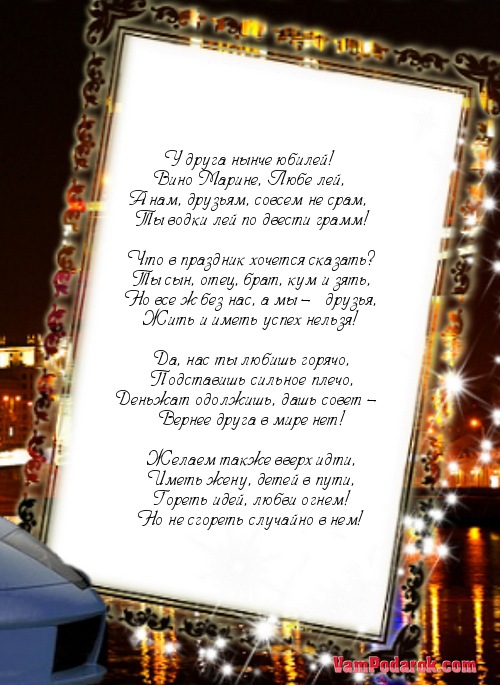 У друга нынче юбилей!
Вино Марине, Любе лей,
А нам, друзьям, совсем не срам,
Ты водки лей по двести грамм!
Что в праздник хочется сказать?
Ты сын, отец, брат, кум и зять,
Но все ж без нас, а мы – друзья,
Жить и иметь успех нельзя!
Да, нас ты любишь горячо,
Подставишь сильное плечо,
Деньжат одолжишь, дашь совет –
Вернее друга в мире нет!
Желаем также вверх идти,
Иметь жену, детей в пути,
Гореть идей, любви огнем!
Но не сгореть случайно в нем!
VamPodarok.com